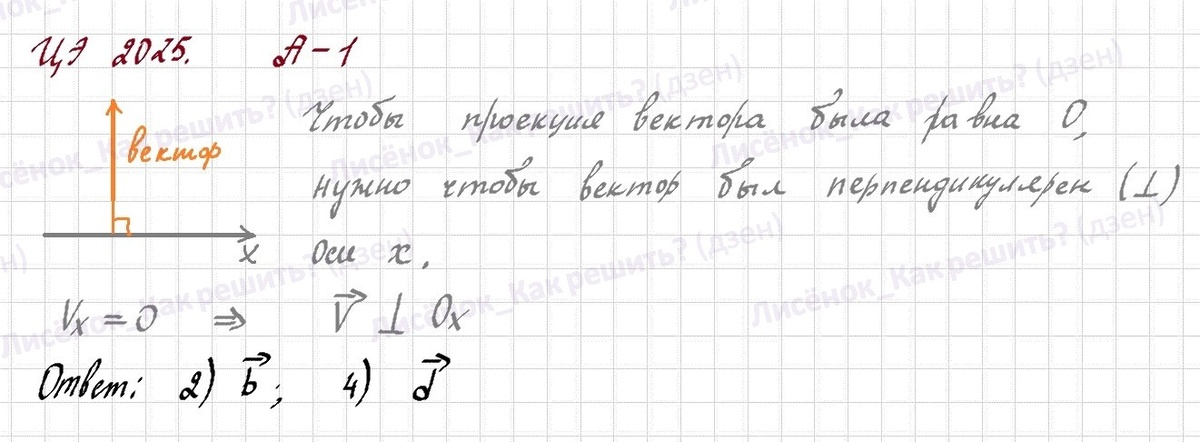 ЦЭ 2025. А-1
Чтобы проекция вектора была равна 0,
вектор
нужно чтобы вектор был перпендикулярен (⊥)
x
оси x.
Vx = 0 ⇒ V⃗ ⊥ Ox
Ответ: 2) b⃗; 4) d⃗
Лисёнок_Как решить? (дзен)